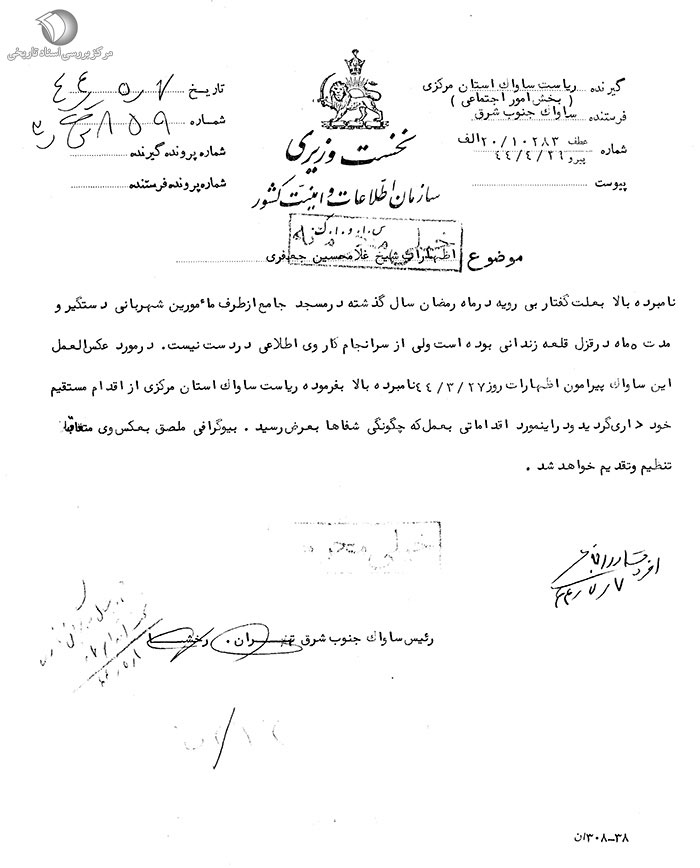 مرکز بررسی اسناد تاریخی
گیرنده ریاست ساواك استان مرکزی
( بخش امور اجتماعی )
فرستنده ساواك جنوب شرق
شماره عطف ۲۰/۱۰۲۸۳الف
پیرو ۴۴/۴/۲۱
پیوست
نخست وزیری
سازمان اطلاعات و امنیت کشور
س.ا.و.ا.ك
تاریخ
شماره
شماره پرونده گیرنده
شماره پرونده فرستنده
خیلی محرمانه
موضوع اظهارات شیخ غلامحسین جعفری
نامبرده بالا بعلت گفتار بی رویه درماه رمضان سال گذشته درمسجد جامع ازطرف مأمورین شهربانی دستگیر و
مدت ۵ماه درقزل قلعه زندانی بوده است ولی از سرانجام کار وی اطلاعی دردست نیست. درمورد عکس العمل
این ساواك پیرامون اظهارات روز ۴۴/۳/۲۷نامبرده بالا بفرموده ریاست ساواك استان مرکزی از اقدام مستقیم
خود داری گردید ودراینمورد اقداماتی بعمل که چگونگی شفاها بعرض رسید . بیوگرافی ملصق بعکس وی متعاقبا
تنظیم وتقدیم خواهد شد .
خیلی محرمانه
رئیس ساواك جنوب شرق تهران . رخشا
۳۸–۳۰۸/ن